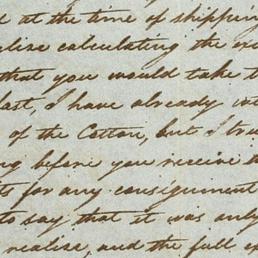 at the time of shipping
calculating the ex
that you would take t
last, I have already
of the Cotton, but I tru
before you receive
ts for any consignment
to say that it was only
realise, and the full ex